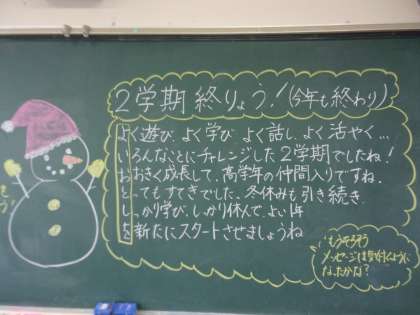 2学期 終りょう!(今年も終わり)
よく遊び、よく学び、よく話し、よく活やく…
いろんなことにチャレンジした2学期でしたね!
おおきく成長して、高学年の仲間入りですね。
とってもすてきでした。冬休みも引き続き、
しっかり学び、しっかり休んで、よい年
を新たにスタートさせましょうね
もうそろそろ
メッセージは気付くように
なったかな?